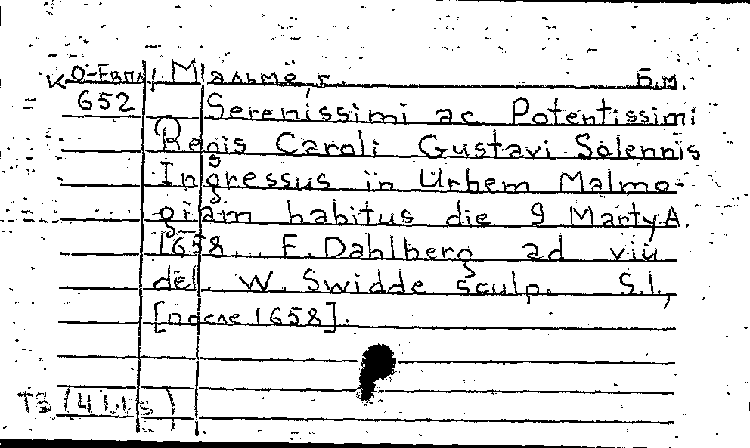 К О-Евпл Мальмё, г. Б.м.
652 Serenissimi ac Potentissimi
Regis Caroli Gustavi Solennis
Ingressus in Urbem Malmo-
giam habitus die 9 Marty A.
1658. E. Dahlberg ad viu
del. W. Swidde sculp. S.l.,
[после 1658].